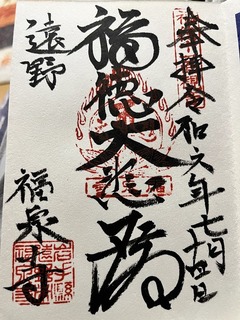 奉拝 令和六年七月十四日
福徳大悲閣
遠野
福泉寺